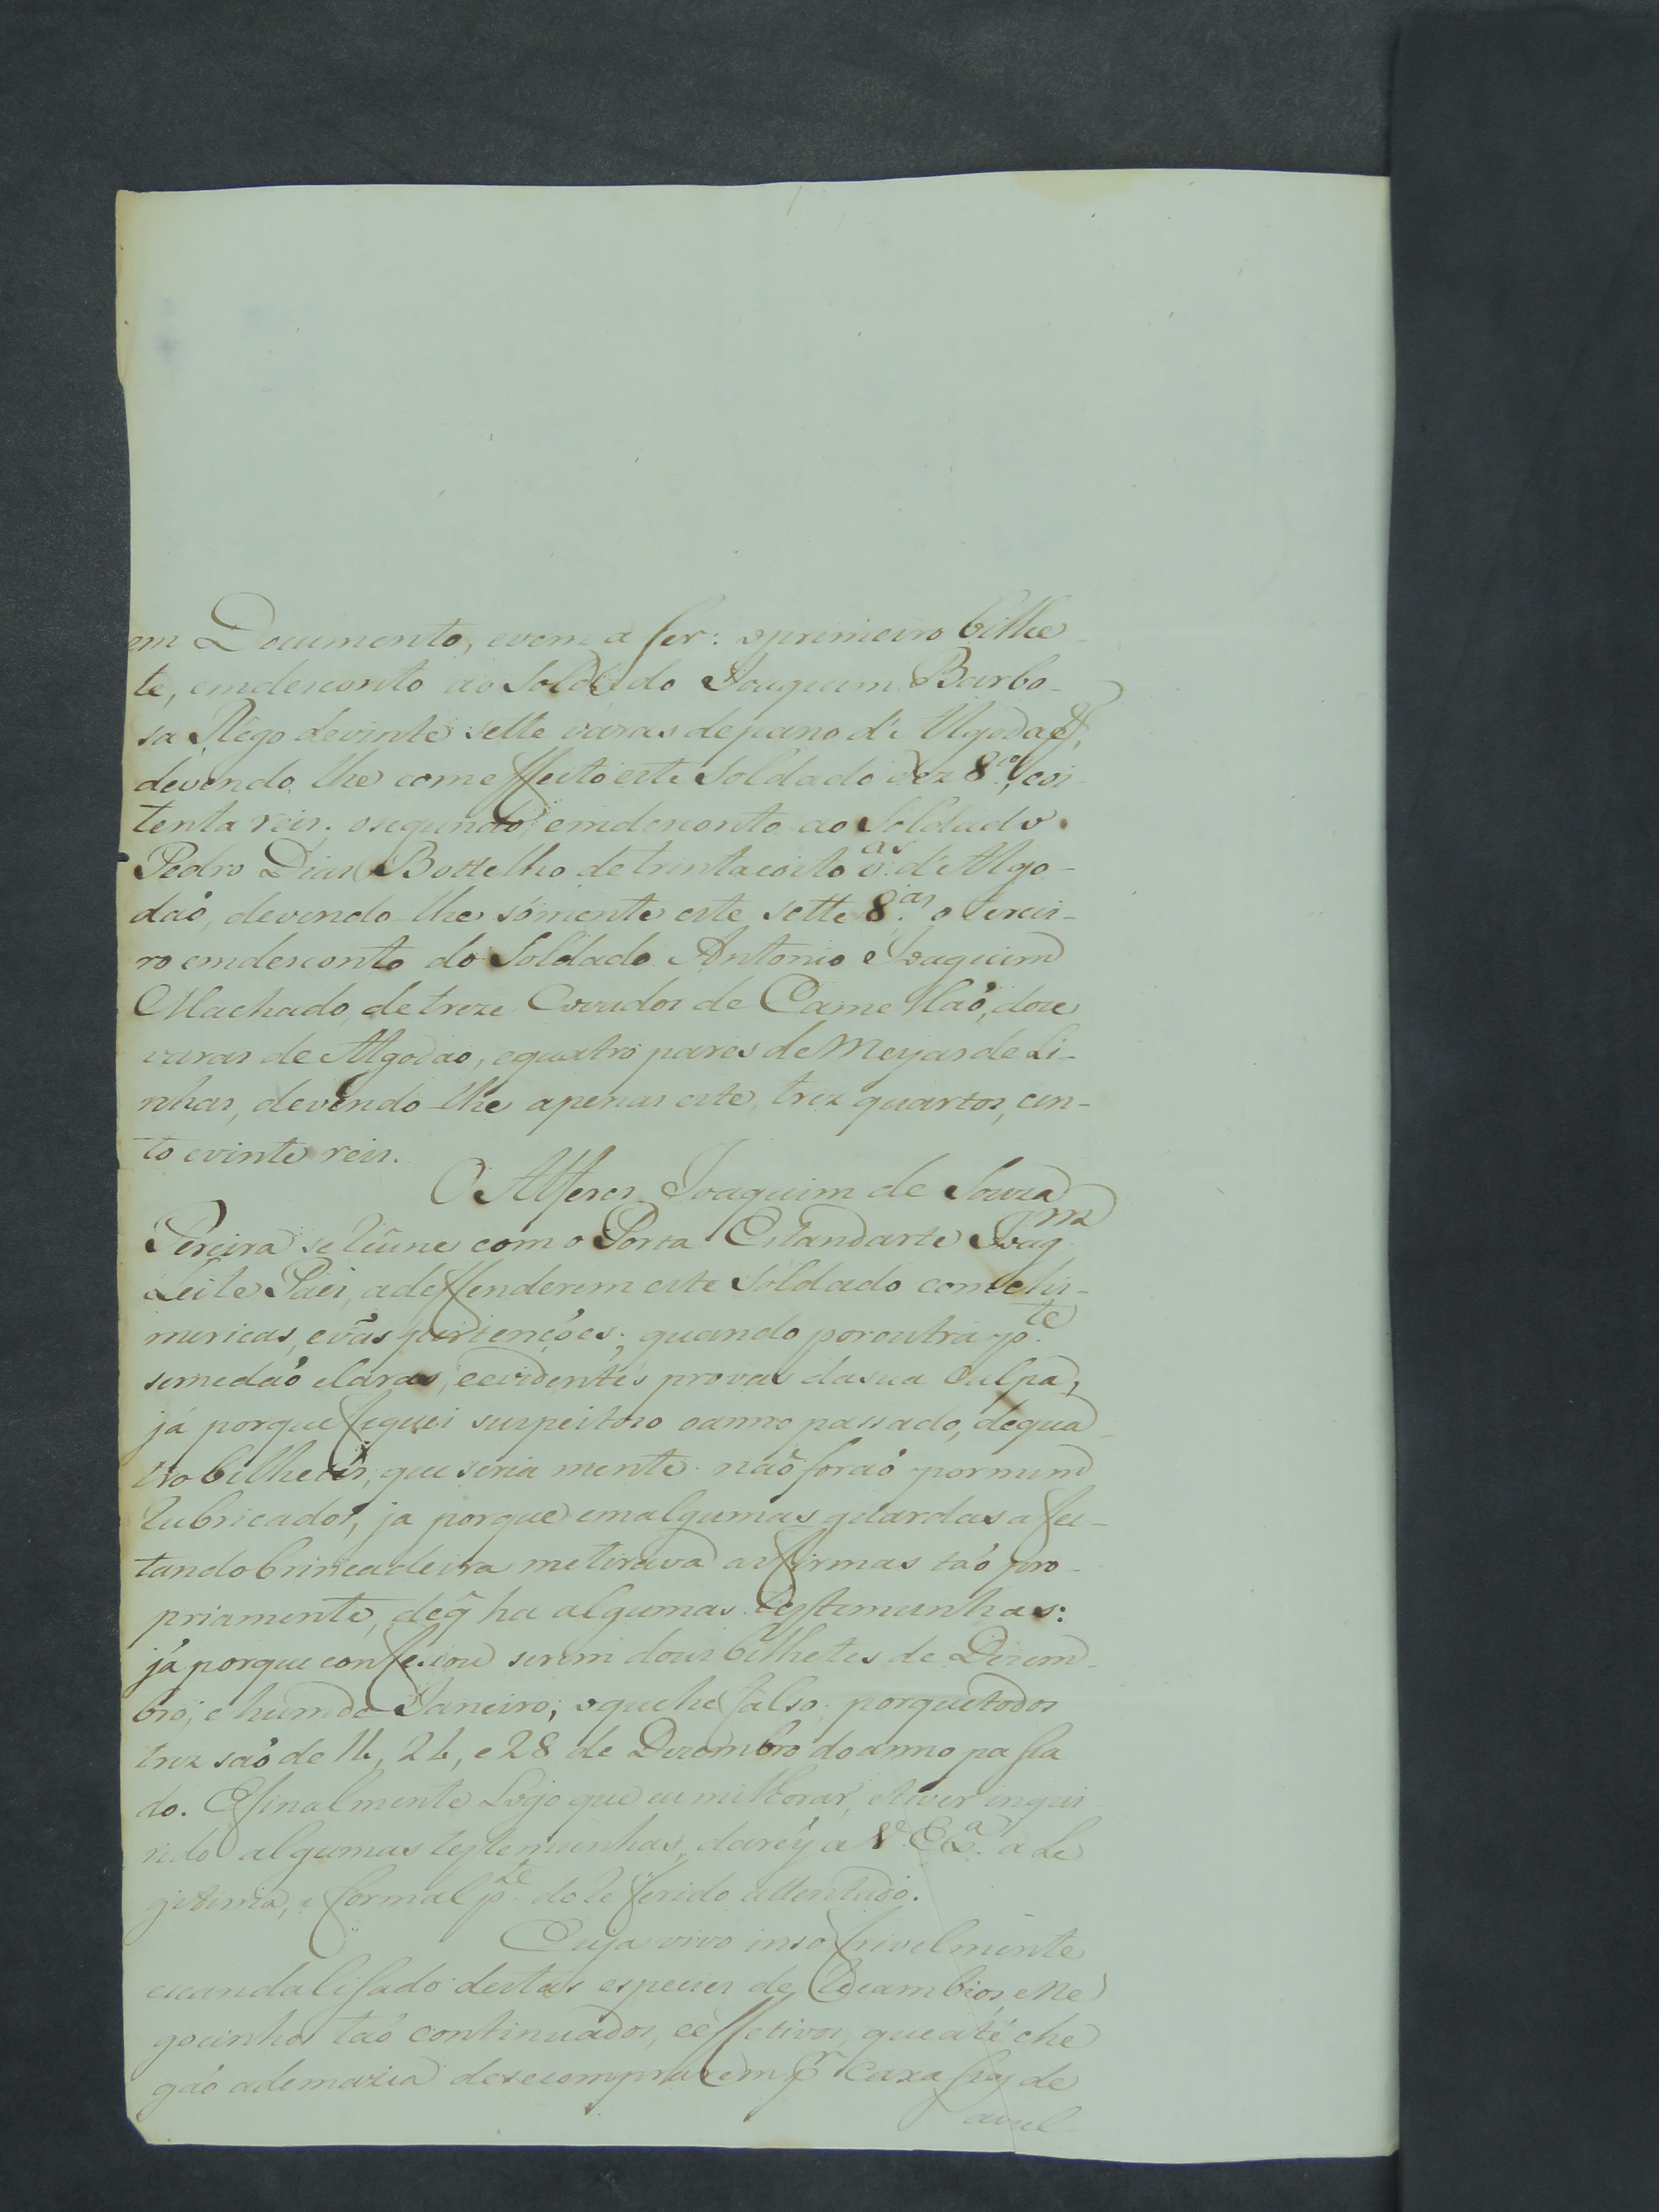 em Documento, evem a ser: oprimeiro bilhe
te, emdesconto ao Soldado Joaquim Barbo-
sa Rêgo devinte sette varas depano d'Algodaõ,
devendo lhe comeffeito este Soldado dez 8.as, eoi
tenta reis. osegundo, emdesconto ao Soldado
Pedro Dias Bottelho detrintaeoito v.as d'Algo-
daõ, devendo-lhe sómente este sette 8.as o tercei-
ro emdesconto do Soldado Antonio Joaquim
Machado, detreze Covados de Camellaõ, doze
varas de Algodaõ, equatro pares de Meyas de Li-
nhas, devendo-lhe apenas este, trez quartos, cen-
to evinte reis.
O Alferes Joaquim de Souza
Pereira se Reûne com o Porta Estandarte Joaq.m
Leite Paes, adeffenderem este Soldado com chi-
mericas, evãs pertenções; quando poroutra p.te
semedaõ claras, eevidentes provas dasua Culpa,
já porque fiquei suspeitoso oanno passado, dequa
tro bilhetes, que seria mente naõ foraõ pormim
Rubricados, ja porque emalgumas guardas afec-
tando brincadeira metirava asfirmas taõ pro-
priamente, deq̃ ha algumas testemunhas:
já porque confesou serem dous bilhetes de Dezem-
bro, e humde Janeiro, oquehe falso. porquetodos
trez saõ de 11, 21, e 28 de Dezembro doanno passa
do. Efinalmente Logo que eu milhorar, etiver inqui
rido algumas testemunhas, darêy a V. Ex.a a Le
gitima, e formal p.te do Referido attentado.
Euja vivo insofrivelmente
escandalisado destas especies de Cambios, eNe
gocinhos taõ continuados, eèffetivos, queaté che
gaõ ademazia desecomprarem p.r Caxassas de
avel